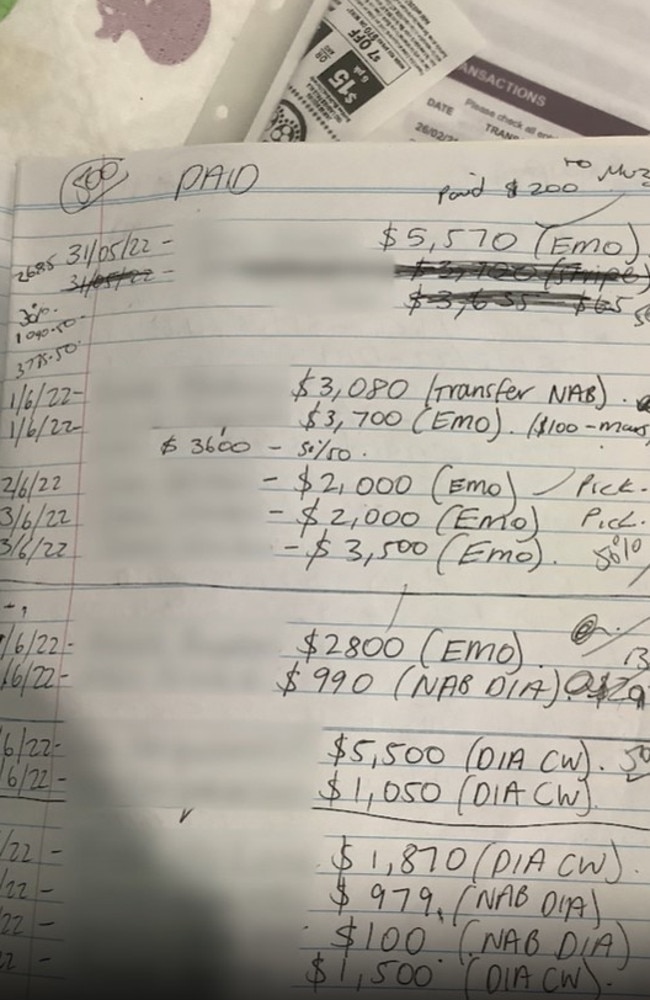 $7 OFF
$15
6 pk
ANSACTIONS
DATE
Please check all
TRANS
26/02/2
500 PAID
paid $200 to Muz
2685 31/05/22 - $5,570 (EMO)
31/05/22 -
30%.
3775.50
1/6/22- $3,080 (Transfer NAB).
1/6/22- $3,700 (EMO). ($100 -
$ 3600 - 50/50.
2/6/22 - $2,000 (EMO) Pick.
3/6/22 - $2,000 (EMO) Pick.
3/6/22 - $3,500 (EMO). 50%
/6/22- $2800 (EMO). 13
/6/22- $990 (NAB DIA)
6/22- $5,500 (DIA CW). 50
6/22- $1,050 (DIA CW)
/22 - $1,870 (DIA CW).
/22 - $979. (NAB DIA)
22 - $100 (NAB DIA)
2 - $1,500 (DIA CW).